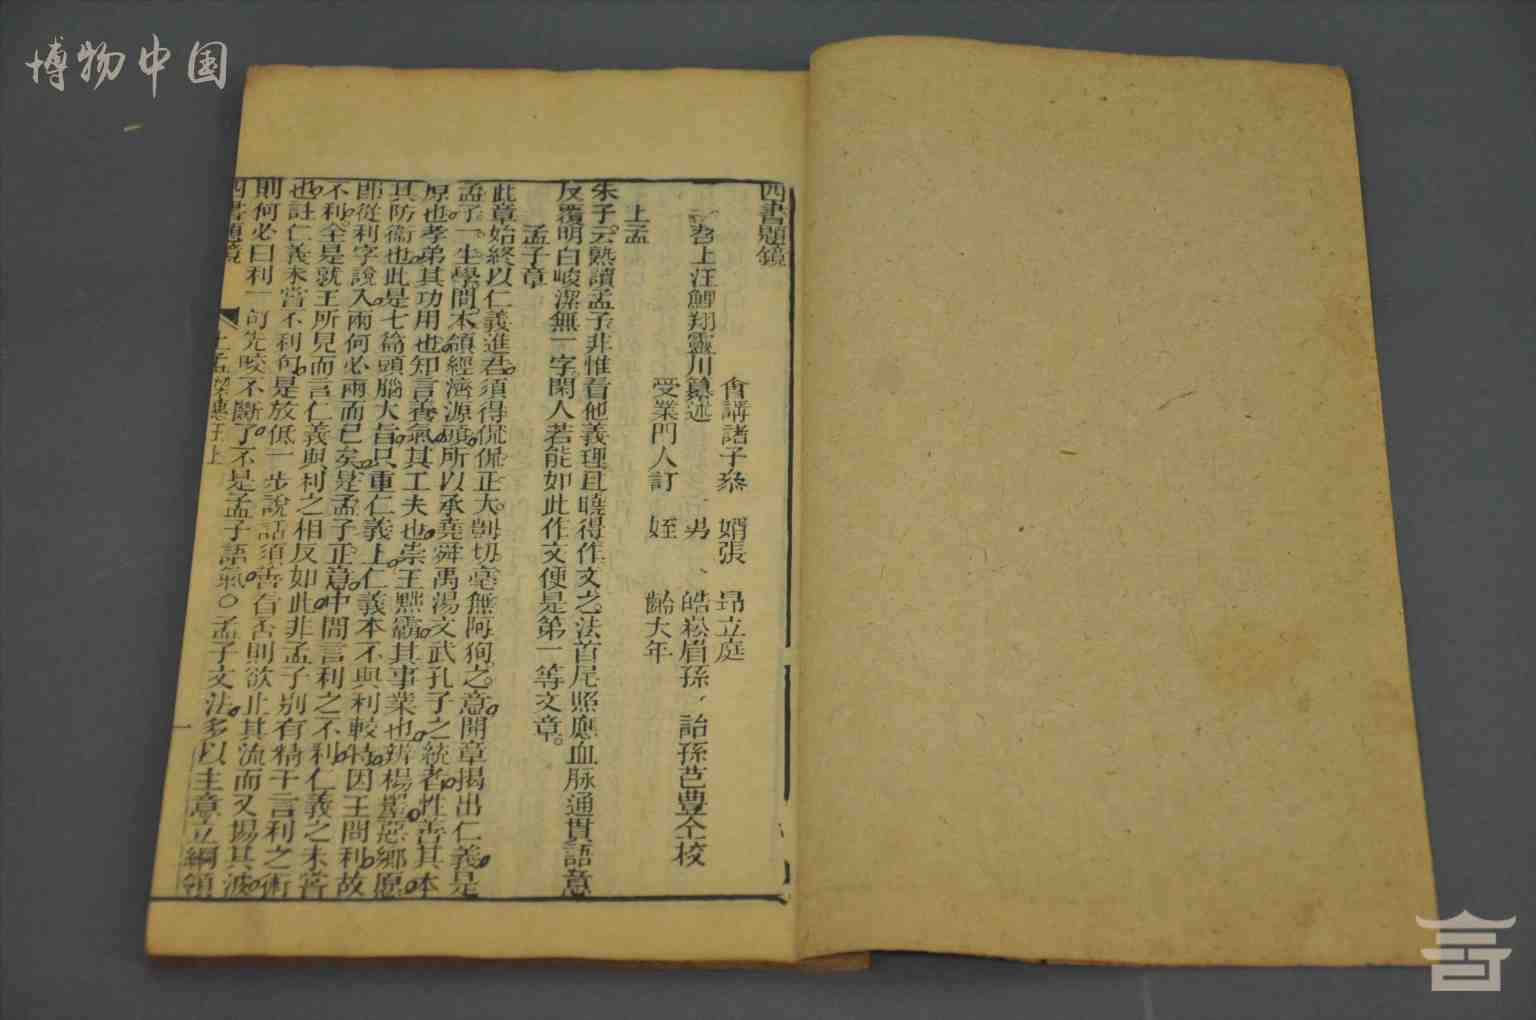 博物中国
四書題鏡
會講諸子叅 婿張 昂立庭
上汪鯉翔靈川纂述 男 皓崧眉孫 詒孫芑豊仝校
受業門人訂 姪 齡大年
上孟
朱子云熟讀孟子非惟看他義理且曉得作文之法首尾照應血脉通貫語意
反覆明白峻潔無一字閑人若能如此作文便是第一等文章
孟子章
此章始終以仁義進君須得侃侃正大凱切毫無阿狥之意開章揭出仁義是
孟子一生學問本領經濟源頭所以承堯舜禹湯文武孔子之統者性善其本
原也孝弟其功用也知言養氣其工夫也崇王黜霸其事業也辨楊墨惡鄉愿
其防衞也此是七篇頭腦大旨只重仁義上仁義本不與利較特因王問利故
即從利字說入兩何必兩而已矣是孟子正意中間言利之不利仁義之未嘗
不利全是就王所見而言仁義與利之相反如此非孟子別有精于言利之術
也註仁義未嘗不利句是放低一步說話須善看否則欲止其流而又揚其波
則何必曰利一句先咬不斷了不是孟子語氣○孟子文法多以主意立綱領
四書題鏡 上孟梁惠王上 一